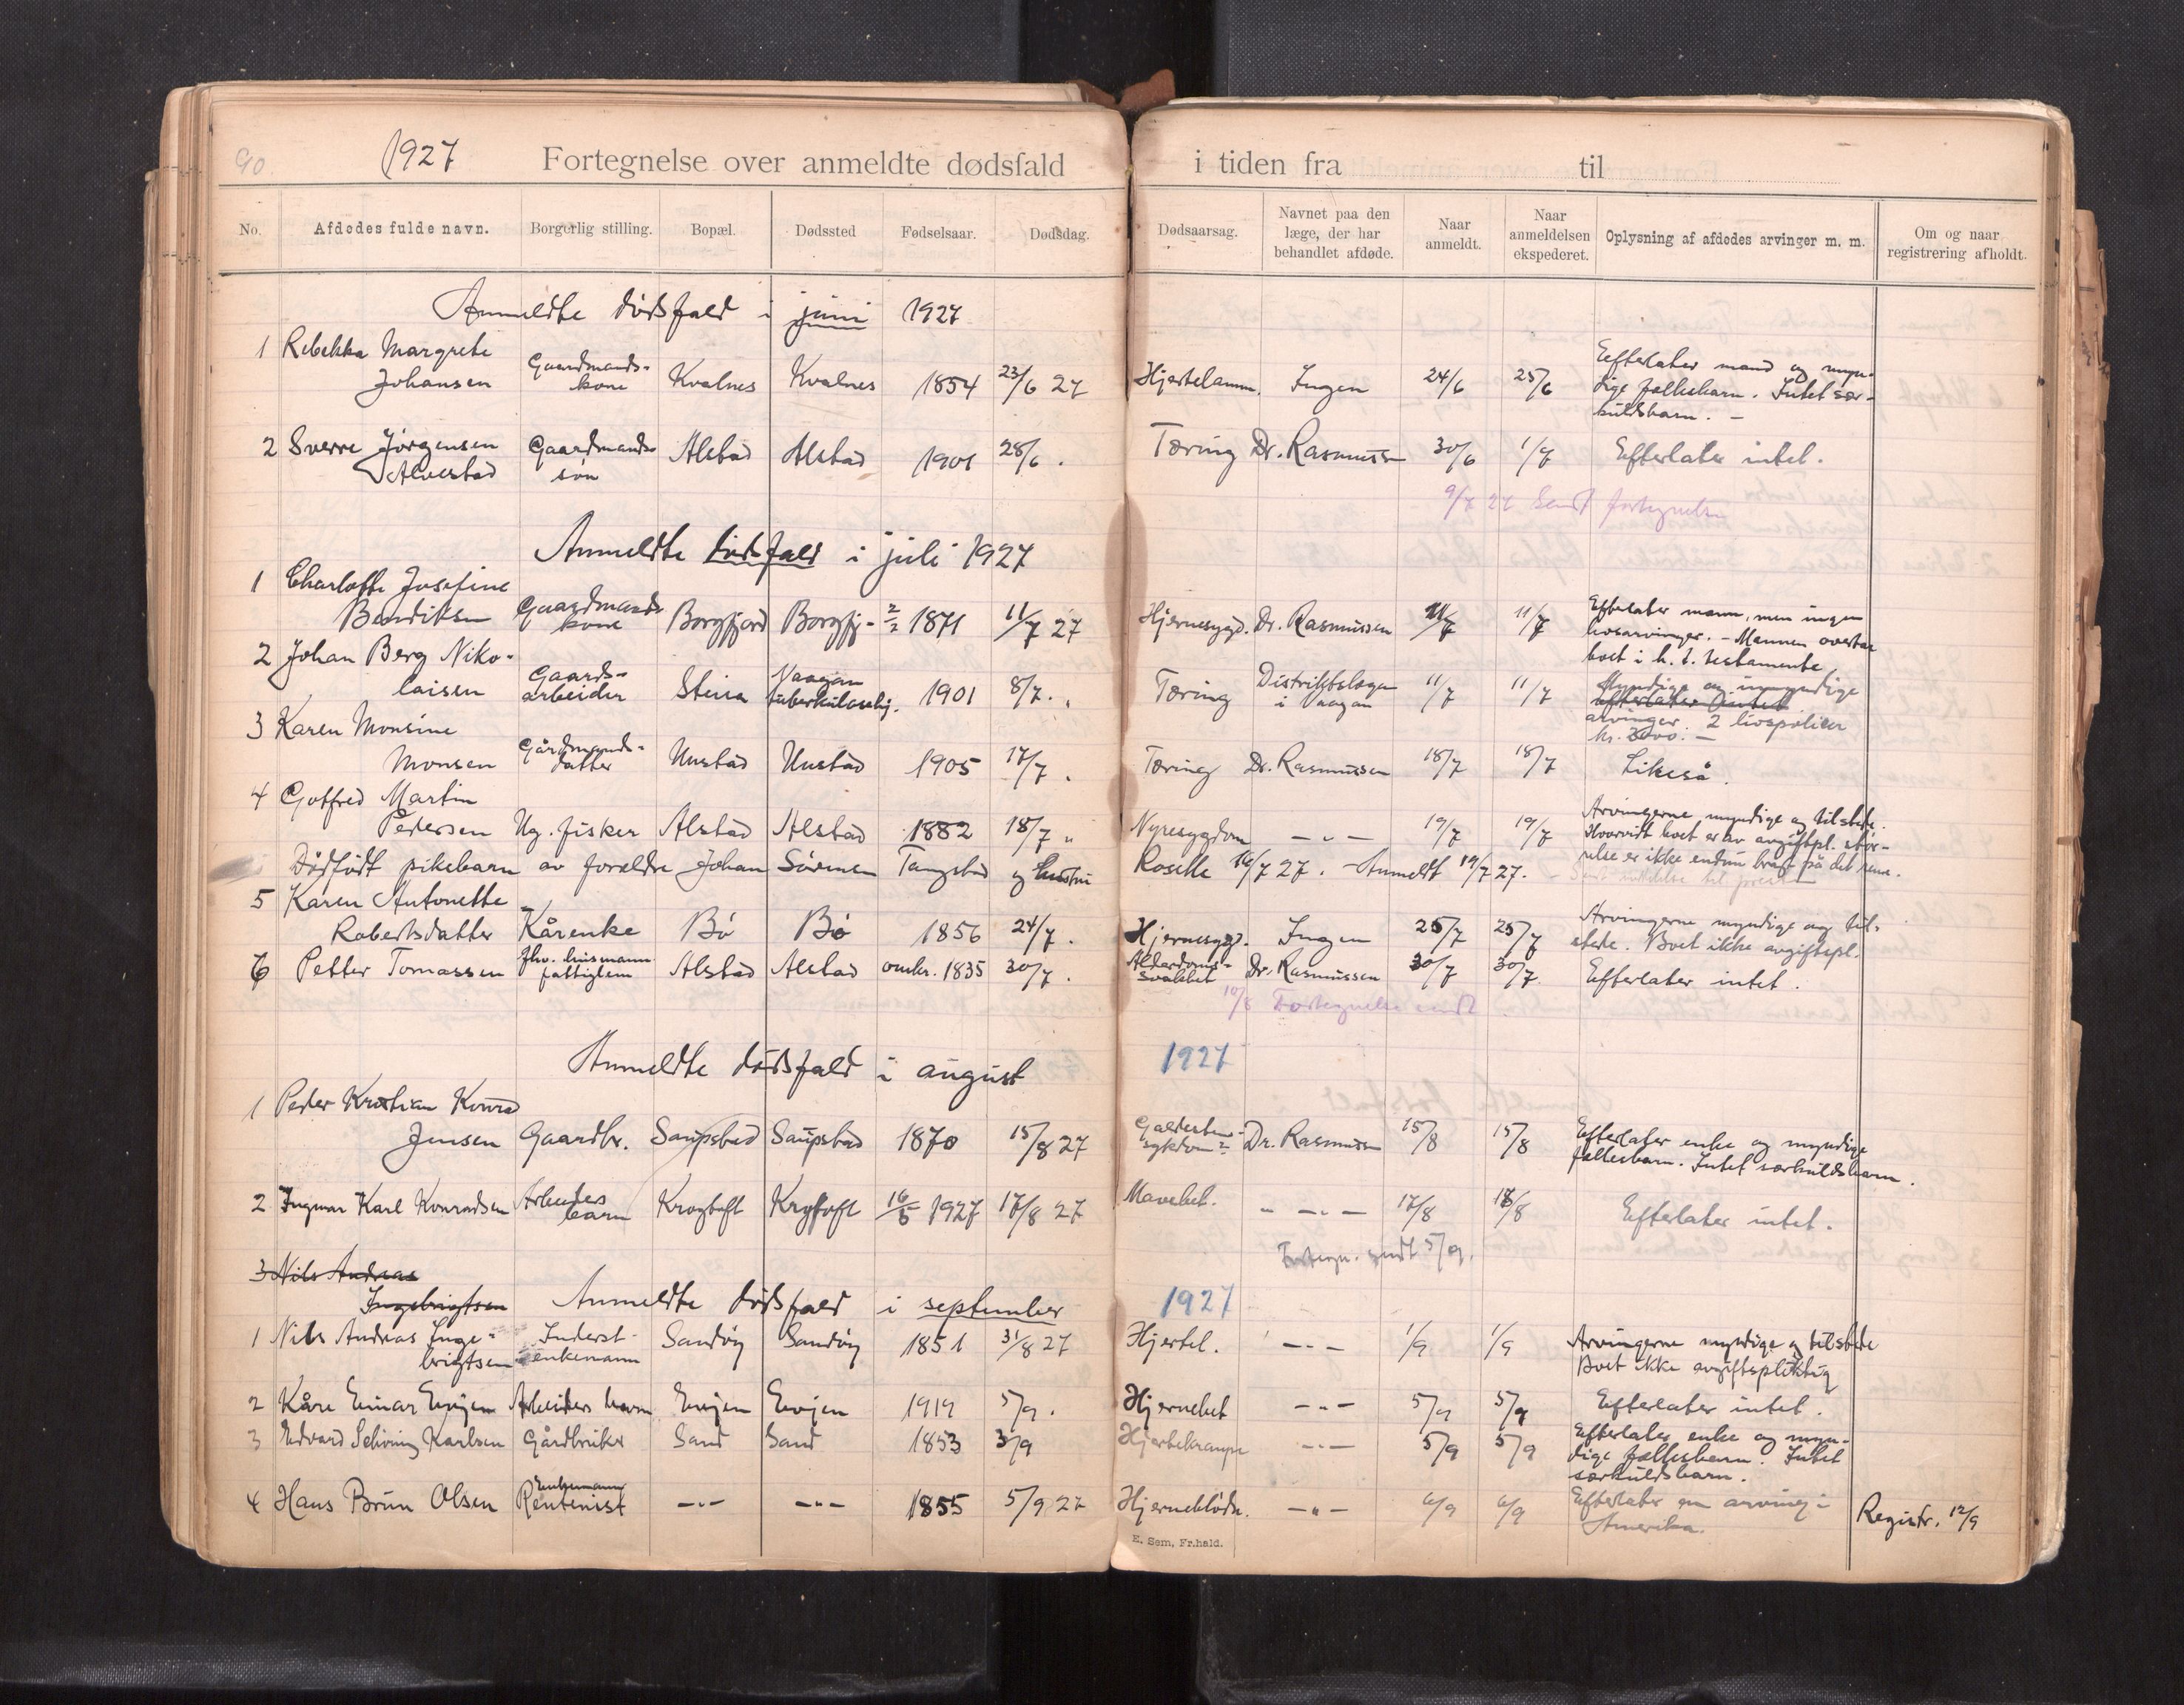 90
1927 Fortegnelse over anmeldte dødsfald i tiden fra til
No. Afdødes fulde navn. Borgerlig stilling. Bopæl. Dødssted Fødselsaar. Dødsdag. Dødsaarsag. Navnet paa den læge, der har behandlet afdøde. Naar anmeldt. Naar anmeldelsen ekspederet. Oplysning af afdødes arvinger m. m. Om og naar registrering afholdt.
Anmeldte dødsfald i juni 1927
1 Rebekka Margrete
Johansen Gaardmands-kone Kvalnes Kvalnes 1854 23/6 27 Hjertelamm. Ingen 24/6 25/6 Efterlater mand og myn-
dige fællesbarn. Intet sær-
kuldsbarn. –
2 Sverre Jørgensen
Alvestad Gaardmands-søn Alstad Alstad 1901 28/6 . Tæring Dr. Rasmussen 30/6 1/7 Efterlater intet.
9/7 27 Sendt fortegnelse
Anmeldte dødsfald i juli 1927
1 Charlotte Josefine
Bendiksen Gaardmands kone Borgfjord Borgfj- 2/2 1871 11/7 27 Hjernesygd. Dr. Rasmussen 11/7 11/7 Efterlater mann, men ingen
livsarvinger. – Mannen overtar
boet i h. t. testamente
2 Johan Berg Niko-
laisen Gaards-arbeider Steira Vaagan tuberkulosehj. 1901 8/7. „ Tæring Distriktslægen i Vaagan 11/7 11/7 Myndige og umyndige
efterlater intet
arvinger. 2 livspoliser
kr. 2000. –
3 Karen Monsine
Monsen Gårdmands-datter Unstad Unstad 1905 17/7 „ Tæring Dr. Rasmussen 18/7 18/7 Likeså.
4 Gotfred Martin
Pedersen Ug. fisker Alstad Alstad 1882 18/7 „ Nyresygdom – „ – 19/7 19/7 Arvingerne myndige og tilstede.
Hvorvidt boet er av avgiftspl. stør-
relse er ikke endnu bragt på det rene.
Dødfødt pikebarn av forældre Johan Sørensen Tangstad og hustru Roselle 16/7 27. – Anmeldt 19/7 27.
5 Karen Antonette
Robertsdatter Kårenke Bø Bø 1856 24/7 . Hjernesygd. Ingen 25/7 25/7 Arvingerne myndige og til-
stede. Boet ikke avgiftspl.
6 Petter Tomassen fhv. husmann fattiglem Alstad Alstad omkr. 1835 30/7 . Alderdoms-svakhet Dr. Rasmussen 30/7 30/7 Efterlater intet.
10/8 Fortegnelse sendt
Anmeldte dødsfald i august 1927
1 Peder Kristian Konrad
Jensen Gaardbr. Saupstad Saupstad 1870 15/8 27 Galdesten-sykdom Dr. Rasmussen 15/8 15/8 Efterlater enke og myndige
fællesbarn. Intet særkuldsbarn.
2 Ingmar Karl Konradsen Arbeiders barn Krogtoft Krogtoft 16/5 1927 17/8 27 Mavekat. „ – „ – 17/8 18/8 Efterlater intet.
Fortegn. sendt 5/9.
3 Nils Andreas
Ingebrigtsen Anmeldte dødsfald i september 1927
1 Nils Andreas Inge-
brigtsen Inderst-enkemann Sandøy Sandøy 1851 31/8 27 Hjertel. – „ – 1/9 1/9 Arvingerne myndige og tilstede
Boet ikke avgiftspliktig
2 Kåre Einar Evjen Arbeiders barn Evjen Evjen 1919 5/9. Hjernebet – „ – 5/9 5/9 Efterlater intet.
3 Edvard Schøning Karlsen Gårdbruker Sand Sand 1853 3/9 Hjertekrampe – „ – 5/9 5/9 Efterlater enke og myn-
dige fællesbarn. Intet
særkuldsbarn.
4 Hans Brun Olsen Enkemann Rentenist – „ – – „ – 1855 5/9 27 Hjerneblødn. – „ – 6/9 6/9 Efterlater en arving i
Amerika. Registr. 12/9
E. Sem, Fr.hald.